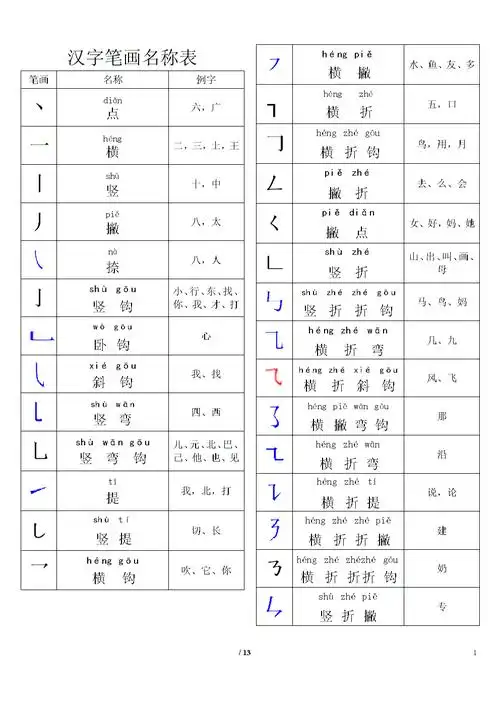 汉字笔画名称表
笔画 名称 例字
丶 diǎn 六，广
点
一 héng 二，三，土，王
横
丨 shù 十，中
竖
丿 piě 八，太
撇
㇏ nà 八，人
捺
亅 shù gōu 小、行、东、找、
竖 钩 你、我、才、打
wò gōu 心
卧 钩
xié gōu 我、找
斜 钩
shù wān 四、西
竖 弯
乚 shù wān gōu 儿、元、北、巴、
竖 弯 钩 己、他、也、见
tí 我，北，打
提
shù tí 切、长
竖 提
乛 héng gōu 吹、它、你
横 钩
héng piě 水、鱼、友、多
横 撇
héng zhé 五，口
横 折
héng zhé gōu 鸟，用，月
横 折 钩
piě zhé 去、么、会
撇 折
piě diǎn 女、好，妈、她
撇 点
shù zhé 山、出、叫、画、
竖 折 母
shù zhé zhé gōu 马、鸟、妈
竖 折 折 钩
héng zhé wān 几、九
横 折 弯
héng zhé xié gōu 风、飞
横 折 斜 钩
héng piě wān gōu 那
横 撇 弯 钩
héng zhé wān 沿
横 折 弯
héng zhé tí 说，论
横 折 提
héng zhé zhé piě 建
横 折 折 撇
héng zhé zhézhé gōu 奶
横 折 折折 钩
shù zhé piě 专
竖 折 撇
/ 13 1